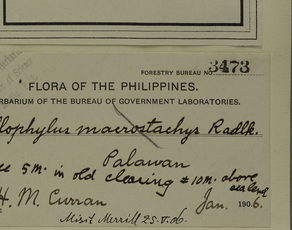 FORESTRY BUREAU NO. 3473
FLORA OF THE PHILIPPINES.
RBARIUM OF THE BUREAU OF GOVERNMENT LABORATORIES.
llophylus macrostachys Radlk.
Palawan
ee 5 m. in old clearing ± 10 m. above
sea level
H. M. Curran Jan. 1906.
Misit Merrill 25-V-06